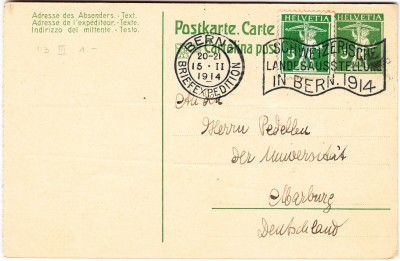 Adresse des Absenders.-Text.
Adresse de l'expéditeur.-Texte.
Indirizzo del mittente.-Testo.
Postkarte. Carte
Cartolina post
HELVETIA HELVETIA
5
BERN
20-21
15·II
1914
BRIEFEXPEDITION
SCHWEIZERISCHE
LANDESAUSSTELLUNG
IN BERN. 1914
An den
Herrn Pedellen
der Universität
Marburg
Deutschland